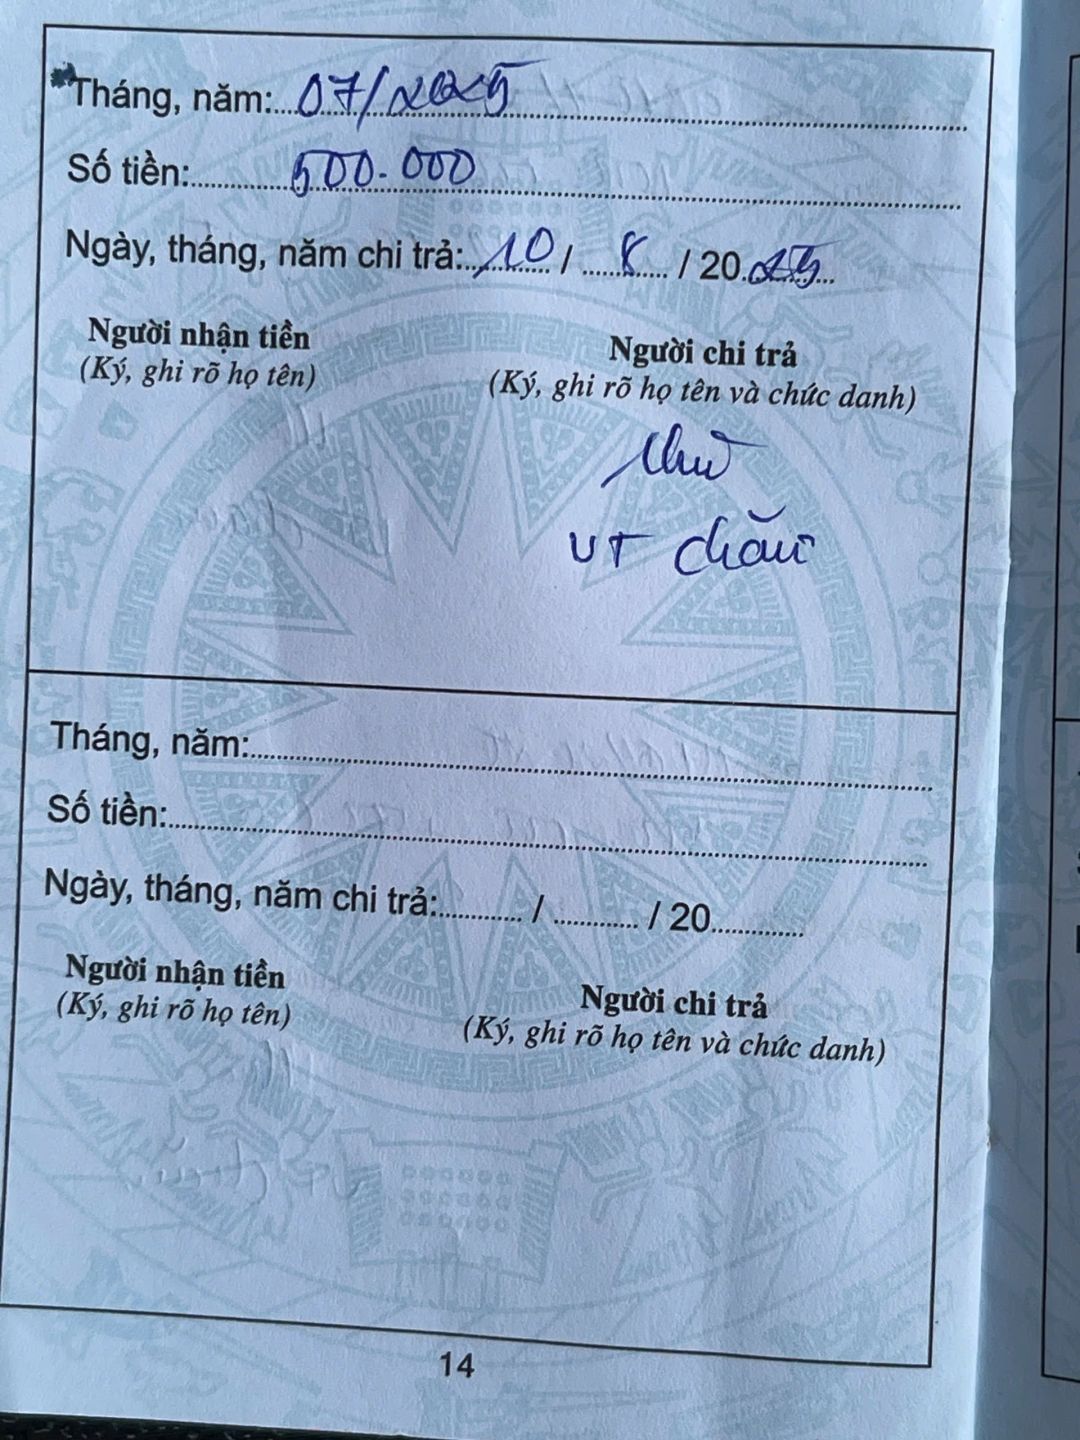 Tháng, năm: 07/2025
Số tiền: 500.000
Ngày, tháng, năm chi trả: 10 / 8 / 2025
Người nhận tiền
(Ký, ghi rõ họ tên)
Người chi trả
(Ký, ghi rõ họ tên và chức danh)
VT
Tháng, năm:
Số tiền:
Ngày, tháng, năm chi trả: / / 20
Người nhận tiền
(Ký, ghi rõ họ tên)
Người chi trả
(Ký, ghi rõ họ tên và chức danh)
14